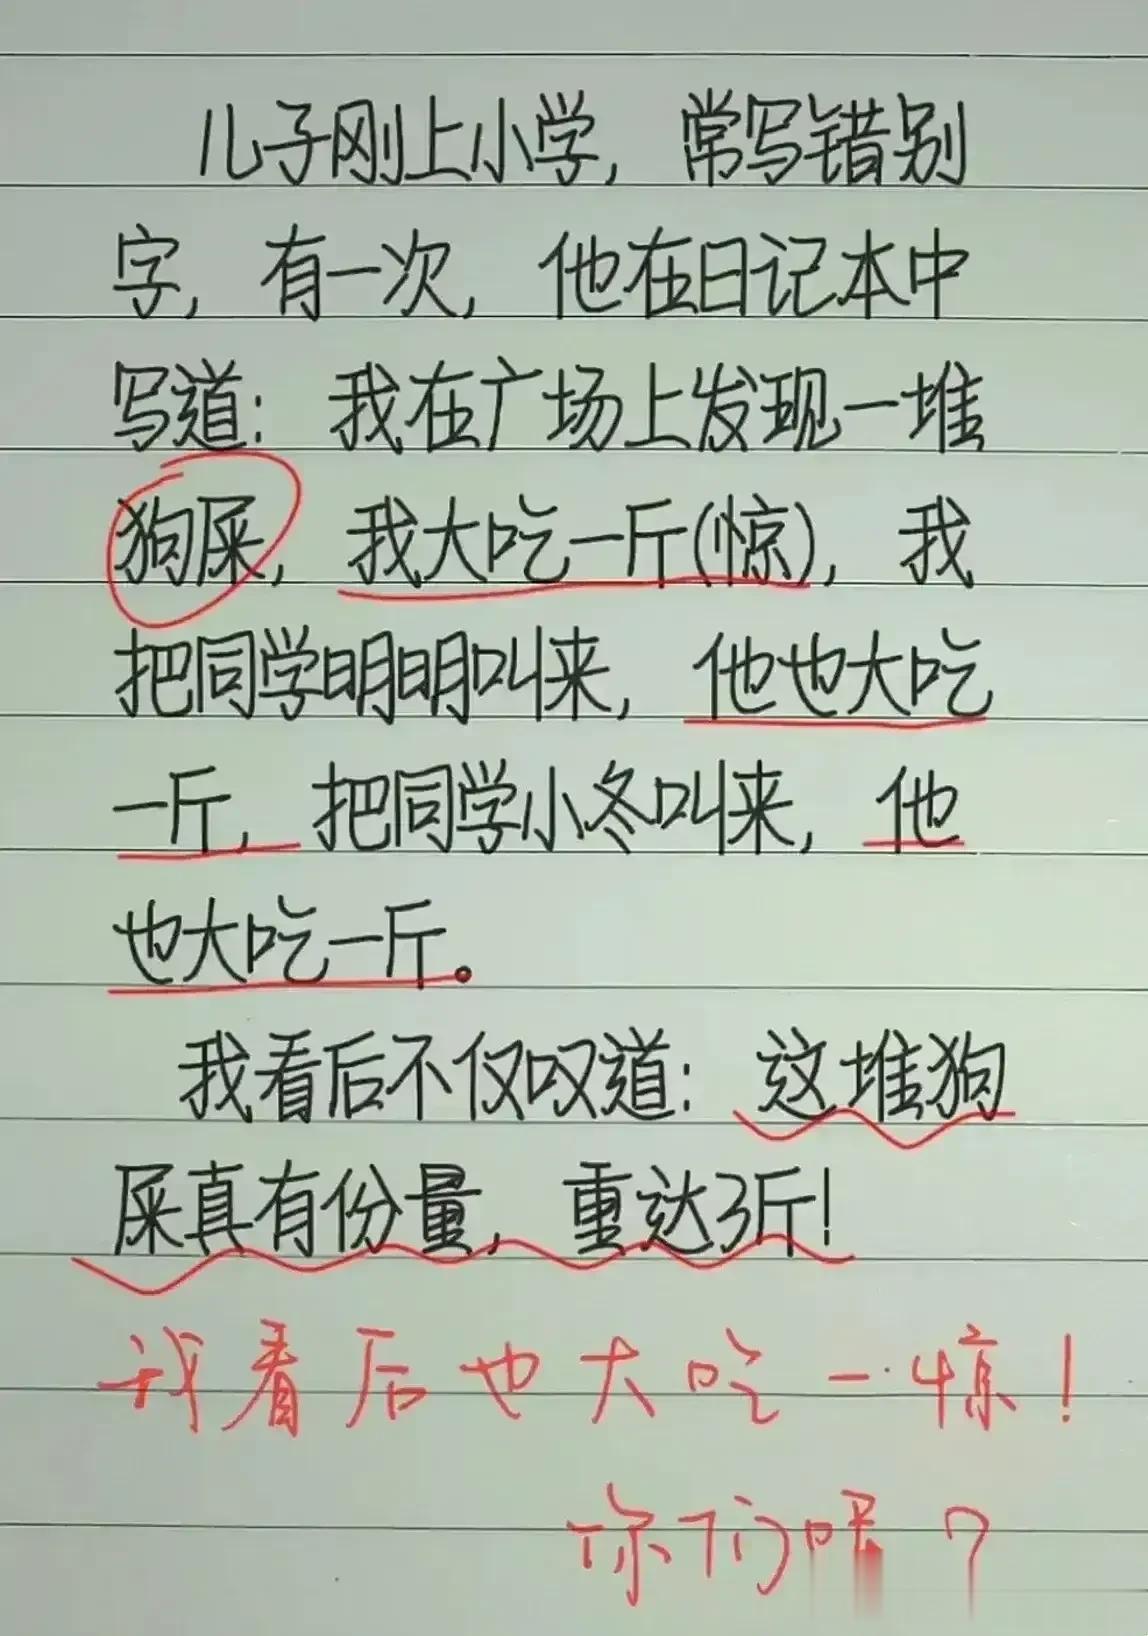 儿子刚上小学，常写错别
字，有一次，他在日记本中
写道：我在广场上发现一堆
狗屎，我大吃一斤(惊)，我
把同学明明叫来，他也大吃
一斤，把同学小冬叫来，他
也大吃一斤。
我看后不仅叹道：这堆狗
屎真有份量，重达3斤！
我看后也大吃一惊！
你们呢？